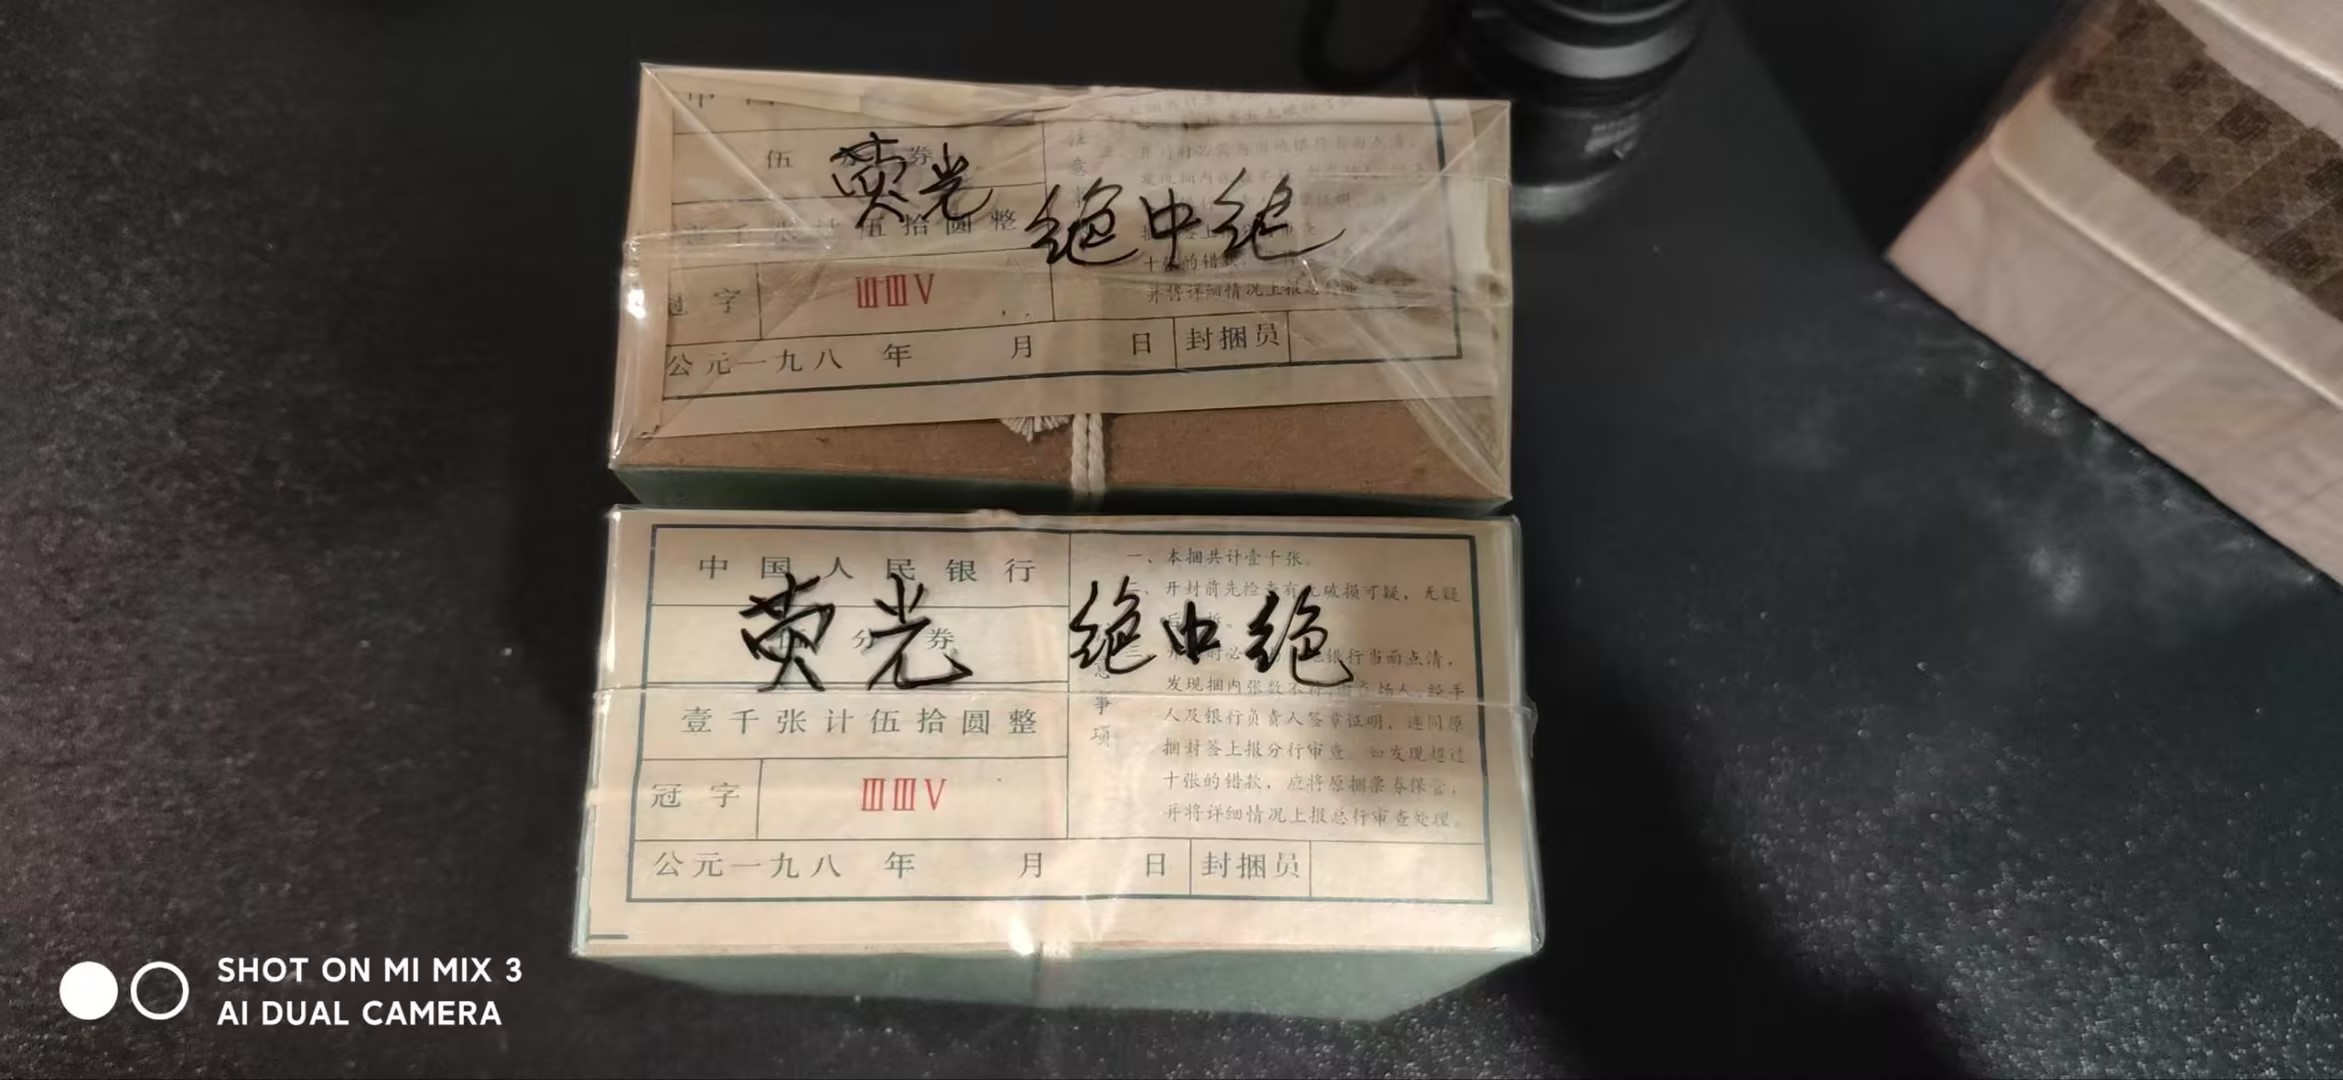 中国
伍 分 券
荧光 绝中绝
壹千张计伍拾圆整
冠字 ⅢⅢⅤ
十张的错款
并将详细情况上报总行审
公元一九八 年 月 日 封捆员
中国人民银行
荧光 绝中绝
分券
壹千张计伍拾圆整
冠字 ⅢⅢⅤ
公元一九八 年 月 日 封捆员
意事项
一、本捆共计壹千张。
开封前先检查有无破损可疑,无疑
银行当面点清,
发现捆内张数不符,由在场人、经手
人及银行负责人签章证明,连同原
捆封签上报分行审查。如发现超过
十张的错款,应将原捆票券保管,
并将详细情况上报总行审查处理。
SHOT ON MI MIX 3
AI DUAL CAMERA